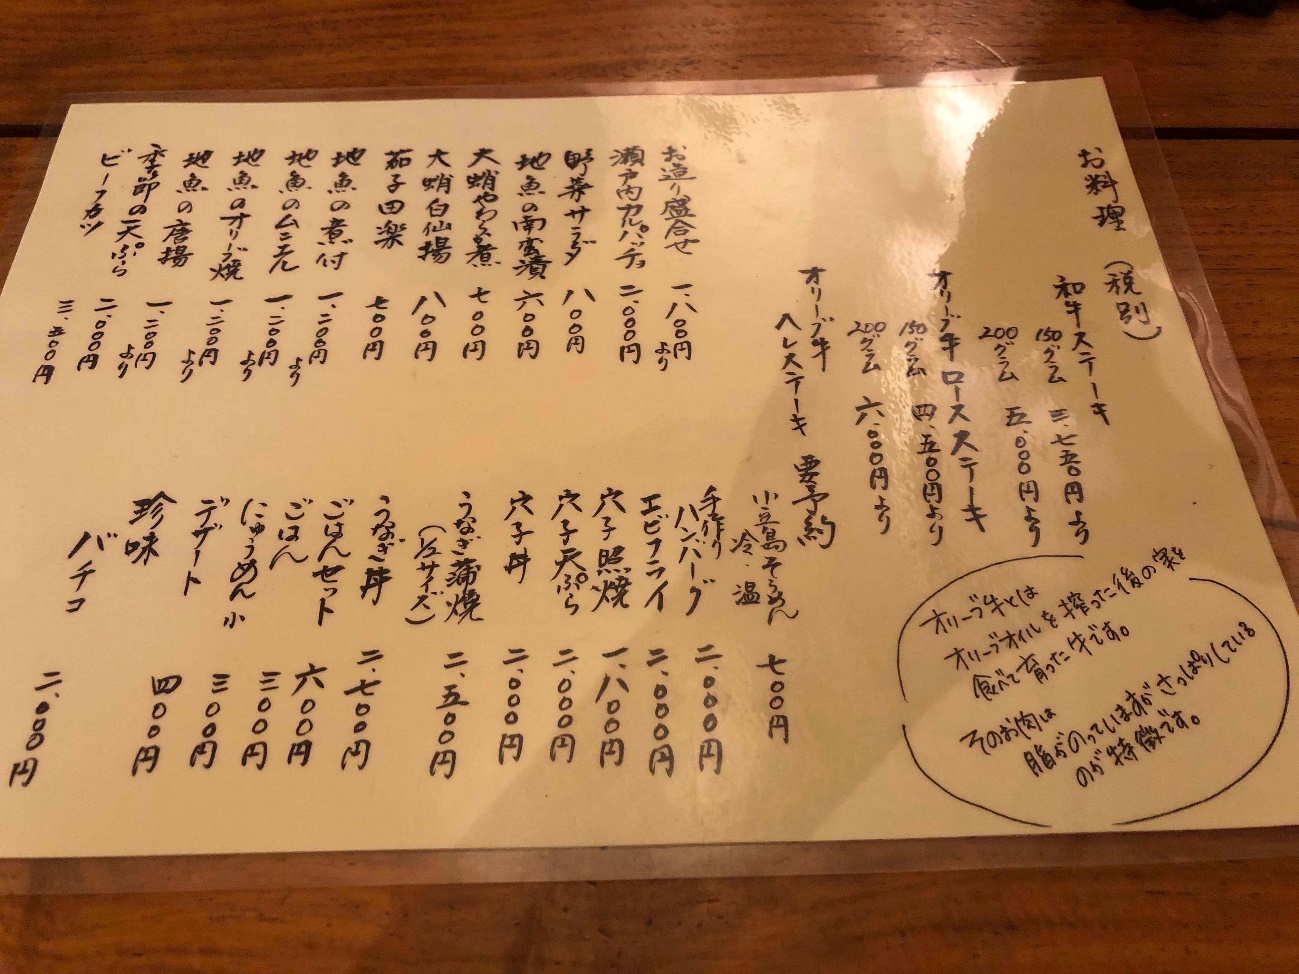 お料理（税別）
和牛ステーキ
150グラム 三、七五〇円より
200グラム 五、〇〇〇円より
オリーブ牛 ロースステーキ
150グラム 四、五〇〇円より
200グラム 六、〇〇〇円より
オリーブ牛
ヘレステーキ 要予約
オリーブ牛とは
オリーブオイルを搾った後の実を
食べて育った牛です。
そのお肉は
脂がのっていますがさっぱりしている
のが特徴です。
お造り盛合せ 一、八〇〇円より
瀬戸内カルパッチョ 二、〇〇〇円
野菜サラダ 八〇〇円
地魚の南蛮漬 六〇〇円
大蛸やわらか煮 七〇〇円
大蛸白仙揚 八〇〇円
茄子田楽 七〇〇円
地魚の煮付 一、二〇〇円より
地魚のムニエル 一、二〇〇円より
地魚のオリーブ焼 一、二〇〇円より
地魚の唐揚 一、二〇〇円より
季節の天ぷら 二、〇〇〇円
ビーフカツ 三、五〇〇円
小豆島そうめん 七〇〇円
冷・温
手作り
ハンバーグ 二、〇〇〇円
エビフライ 二、〇〇〇円
穴子照焼 一、八〇〇円
穴子天ぷら 二、〇〇〇円
穴子丼 二、〇〇〇円
うなぎ蒲焼 二、五〇〇円
（1/2サイズ）
うなぎ丼 二、七〇〇円
ごはんセット 六〇〇円
ごはん 三〇〇円
にゅうめん 小 三〇〇円
デザート 四〇〇円
珍味
バチコ 二、〇〇〇円